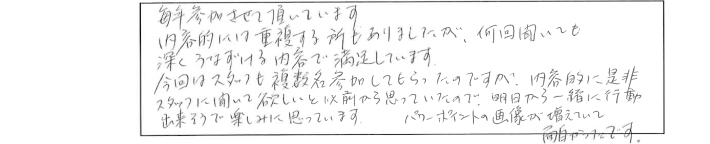 毎年参加させて頂いています
内容的には重複する所もありましたが、何回聞いても
深くうなずける内容で満足しています。
今回はスタッフも複数名参加してもらったのですが、内容的に是非
スタッフに聞いて欲しいと以前から思っていたので、明日から一緒に行動
出来そうで楽しみに思っています。 パワーポイントの画像が増えていて
面白かったです。